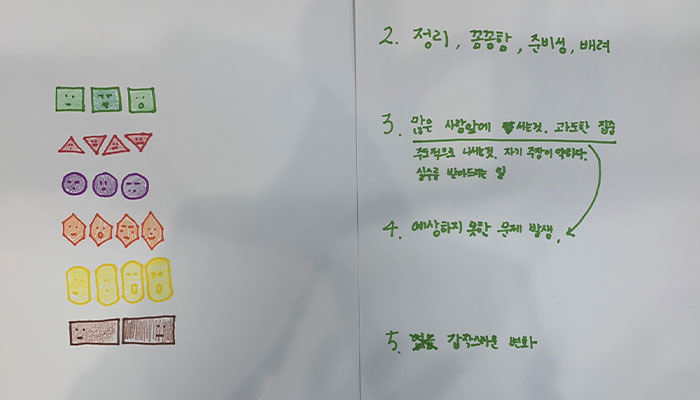 2. 정리, 꼼꼼함, 준비성, 배려
3. 많은 사람앞에 서는것. 과도한 집중
주도적으로 나서는것. 자기 주장이 약하다.
실수를 받아드리는 일
4. 예상하지 못한 문제 발생.
5. 갑작스러운 변화